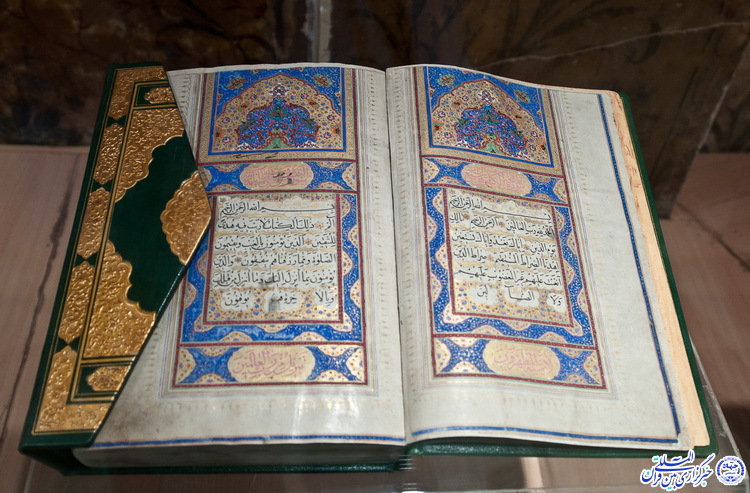 بسم الله الرحمن الرحيم
الحمد لله رب العالمين الرحمن الرحيم مالك
يوم الدين اياك نعبد واياك نستعين
اهدنا الصراط المستقيم صراط الذين
انعمت عليهم غير المغضوب عليهم
ولا الضالين
بسم الله الرحمن الرحيم
الم ذلك الكتاب لا ريب فيه هدى
للمتقين الذين يؤمنون بالغيب ويقيمون
الصلوة ومما رزقناهم ينفقون والذين
يؤمنون بما انزل اليك وما انزل من قبلك
وبالاخرة هم يوقنون
تنزيل من رب العالمين
خبرگزاری بین المللی قرآن